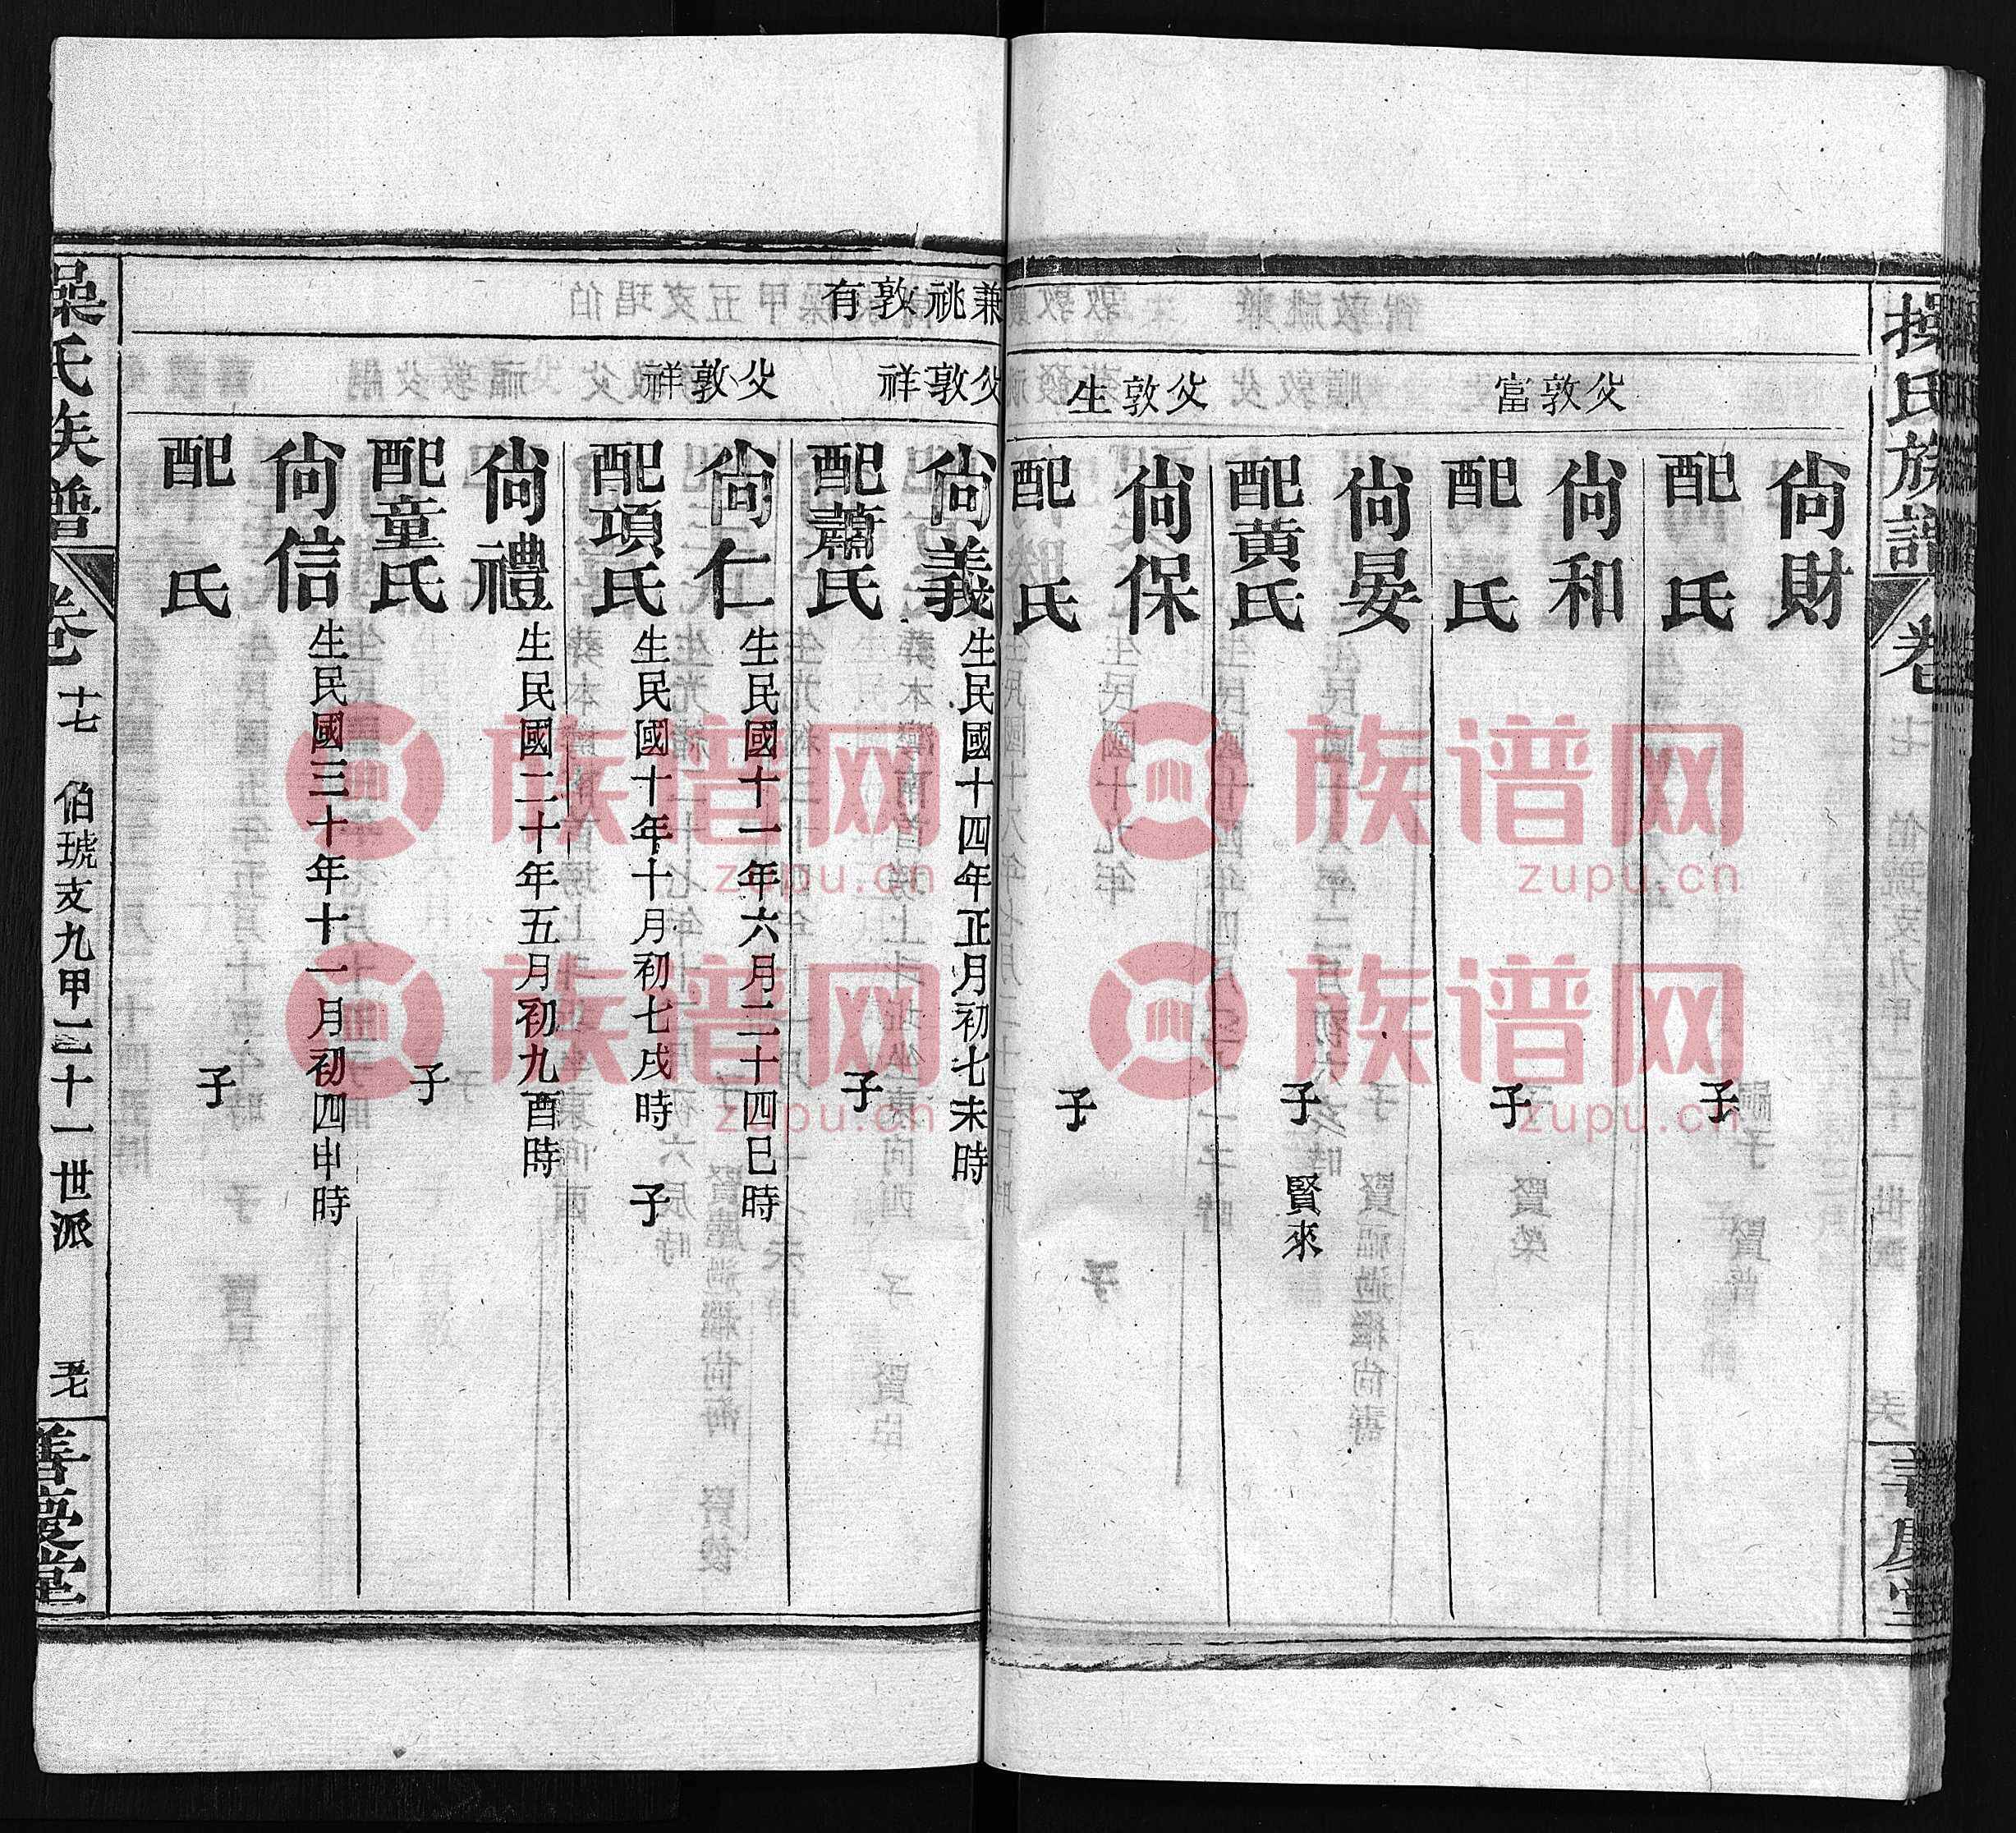 操氏族譜
卷
父敦富
父敦生
尙財
配 氏
子
尙和
配 氏
子
尙晏
配黃氏
子 賢來
尙保
配 氏
子
兼祧敦有
父敦祥
父敦祥
尙義 生民國十四年正月初七未時
配蕭氏
子
尙仁 生民國十一年六月二十四巳時
配項氏 生民國十年十月初七戌時 子
尙禮 生民國二十年五月初九酉時
配童氏
子
尙信 生民國三十年十一月初四申時
配 氏
子
操氏族譜
卷
十七 伯琥支九甲二十一世派
善慶堂
族谱网
zupu.cn
族谱网
zupu.cn
族谱网
zupu.cn
族谱网
zupu.cn